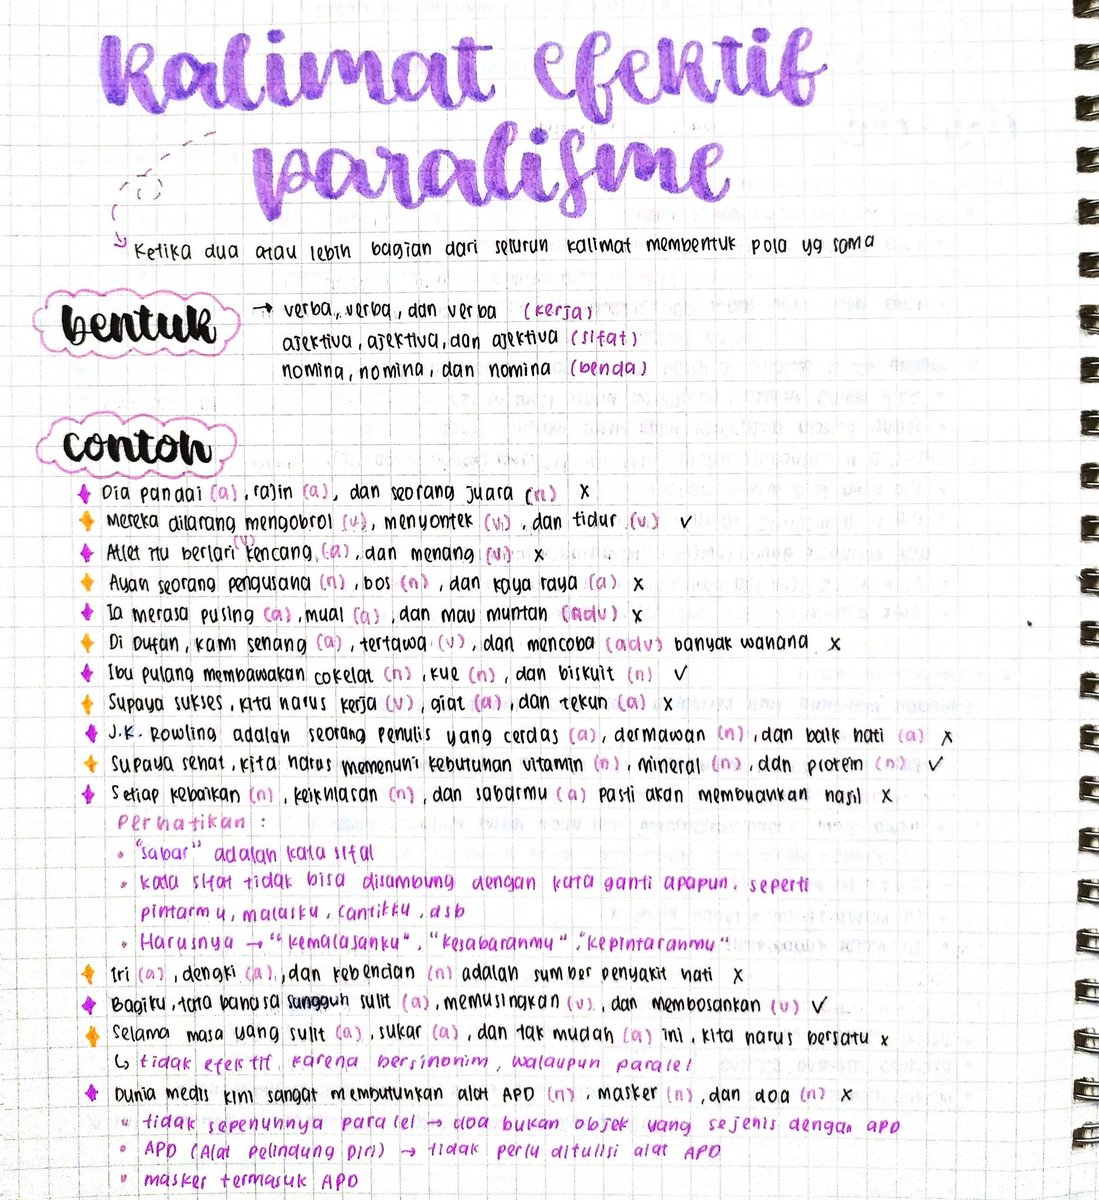 kalimat efektif
paralisme
Ketika dua atau lebih bagian dari seluruh kalimat membentuk pola yg sama
bentuk
→ verba, verba, dan verba (kerja)
ajektiva, ajektiva, dan ajektiva (sifat)
nomina, nomina, dan nomina (benda)
contoh
Dia pandai (a), rajin (a), dan seorang juara (n) x
Mereka dilarang mengobrol (v), menyontek (v), dan tidur (v) ✓
Atlet itu berlari (v) kencang (a), dan menang (v) x
Ayah seorang pengusaha (n), bos (n), dan kaya raya (a) x
Ia merasa pusing (a), mual (a), dan mau muntah (adv) x
Di Dufan, kami senang (a), tertawa (v), dan mencoba (adv) banyak wahana x
Ibu pulang membawakan cokelat (n), kue (n), dan biskuit (n) ✓
Supaya sukses, kita harus kerja (v), giat (a), dan tekun (a) x
J.K. Rowling adalah seorang penulis yang cerdas (a), dermawan (n), dan baik hati (a) x
Supaya sehat, kita harus memenuhi kebutuhan vitamin (n), mineral (n), dan protein (n) ✓
Setiap kebaikan (n), keikhlasan (n), dan sabarmu (a) pasti akan membuahkan hasil x
Perhatikan :
• "sabar" adalah kata sifat
• kata sifat tidak bisa disambung dengan kata ganti apapun. seperti
pintarmu, malasku, cantikku, dsb
• Harusnya → "kemalasanku", "kesabaranmu", "kepintaranmu"
Iri (a), dengki (a), dan kebencian (n) adalah sumber penyakit hati x
Bagiku, tata bahasa sungguh sulit (a), memusingkan (v), dan membosankan (v) ✓
Selama masa yang sulit (a), sukar (a), dan tak mudah (a) ini, kita harus bersatu x
↳ tidak efektif karena bersinonim, walaupun paralel
Dunia medis kini sangat membutuhkan alat APD (n), masker (n), dan doa (n) x
• tidak sepenuhnya paralel → doa bukan objek yang sejenis dengan APD
• APD (Alat Pelindung Diri) → tidak perlu ditulisi alat APD
• masker termasuk APD